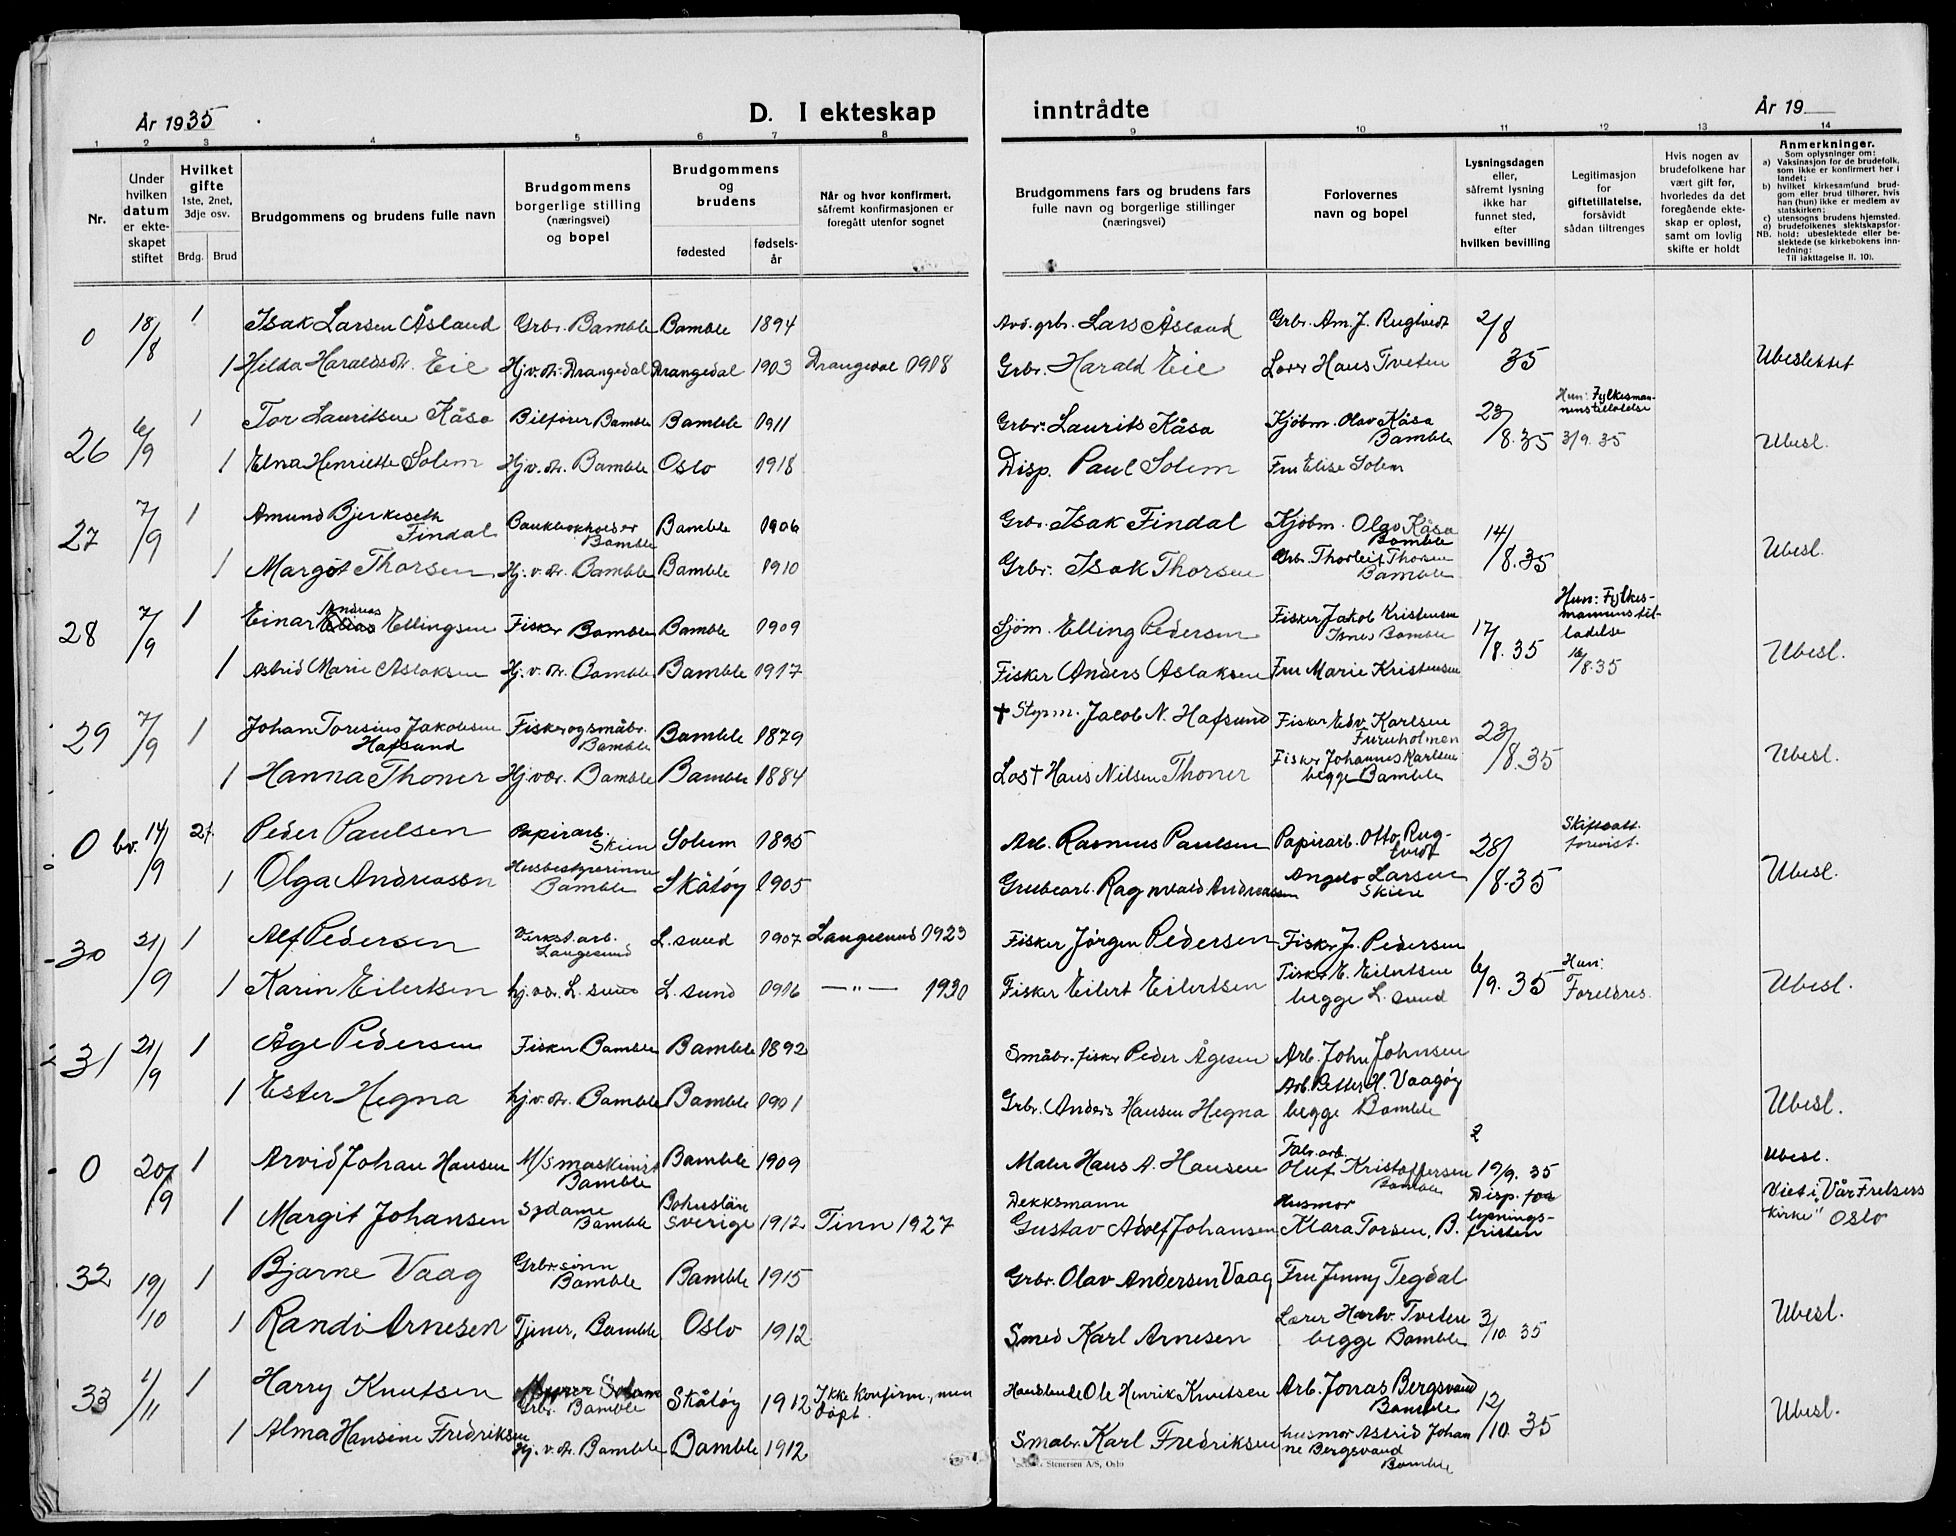 År 1935
D. I ekteskap
inntrådte
År 19
1 2 3 4 5 6 7 8 9 10 11 12 13 14
Nr.
Under
hvilken
datum
er ekte-
skapet
stiftet
Hvilket
gifte
1ste, 2net,
3dje osv.
Brdg. Brud
Brudgommens og brudens fulle navn
Brudgommens
borgerlige stilling
(næringsvei)
og bopel
Brudgommens
og
brudens
fødested
fødsels-
år
Når og hvor konfirmert,
såfremt konfirmasjonen er
foregått utenfor sognet
Brudgommens fars og brudens fars
fulle navn og borgerlige stillinger
(næringsvei)
Forlovernes
navn og bopel
Lysningsdagen
eller,
såfremt lysning
ikke har
funnet sted,
efter
hvilken bevilling
Legitimasjon
for
giftetillatelse,
forsåvidt
sådan tiltrenges
Hvis nogen av
brudefolkene har
vært gift før,
hvorledes da det
foregående ekte-
skap er opløst,
samt om lovlig
skifte er holdt
Anmerkninger.
Som oplysninger om:
a) Vaksinasjon for de brudefolk,
som ikke er konfirmert her i
landet;
b) hvilket kirkesamfund brud-
gom eller brud tilhører, hvis
han (hun) ikke er medlem av
statskirken;
c) utensogns brudens hjemsted.
d) brudefolkenes slektskapsfor-
NB. hold: ubeslektede eller be-
slektede (se kirkebokens inn-
ledning:
Til iakttagelse II. 10).
0 18/8 1 Isak Larsen Åsland Grbr. Bamble Bamble 1894 Avd. grbr. Lars Åsland Grbr. Am. J. Rugtvedt 2/8
1 Hilda Haraldsdtr. Eie Hj.v.dtr. Drangedal Drangedal 1903 Drangedal 1918 Grbr. Harald Eie Lærer Hans Tveten 35 Ubeslektet
26 6/9 1 Tor Lauritsen Kåsa Bilfører Bamble Bamble 1911 Grbr. Laurits Kåsa Kjøbm. Olav Kåsa Bamble 23/8.35 Hun: Fylkesman-
nens tillatelse
3/9. 35
1 Elna Henriette Solem Hj.v.dtr. Bamble Oslo 1918 Disp. Paul Solem Fru Elise Solem Ubesl.
27 7/9 1 Amund Bjerkeseth
Findal Bankbokholder
Bamble Bamble 1906 Grbr. Isak Findal Kjøbm. Olav Kåsa
Bamble 14/8.35
1 Margit Thorsen Hj.v.dtr. Bamble Bamble 1910 Grbr. Isak Thorsen Grbr. Thorleif Thorsen
Bamble Ubesl.
28 7/9 1 Einar Andreas Ellingsen Fisker Bamble Bamble 1909 Sjøm. Elling Pedersen Fisker Jakob Kristensen
Bamble 17/8.35 Hun: Fylkes-
mannens til-
ladelse
16/8.35
1 Astrid Marie Aslaksen Hj.v.dtr. Bamble Bamble 1917 Fisker Anders Aslaksen Fru Marie Kristensen Ubesl.
29 7/9 1 Johan Toresius Jakobsen
Hafsund Fisker og småbr.
Bamble Bamble 1879 † Styrm. Jacob N. Hafsund Fisker Edv. Karlsen
Furuholmen 23/8.35
1 Hanna Thoner Hj.vær. Bamble Bamble 1884 Los † Hans Nilsen Thoner Fisker Johannes Karlsen
begge Bamble Ubesl.
0 bv. 14/9 2 Peder Paulsen Papirarb.
Skien Solum 1895 Arb. Rasmus Paulsen Papirarb. Otto Rug-
tvedt 28/8.35 Skifteatt.
forevist.
1 Olga Andreassen Husbestyrerinne
Bamble Skåtøy 1905 Grubearb. Ragnvald Andreassen Angelo Larsen
Skien Ubesl.
30 21/9 1 Alf Pedersen Verkst.arb.
Langesund L.sund 1907 Langesund 1923 Fisker Jørgen Pedersen Fisker J. Pedersen 6/9. 35 Hun:
Foreldres.
1 Karin Eilertsen hj.vær. L.sund L.sund 1916 — " — 1930 Fisker Eilert Eilertsen Fisker E. Eilertsen
begge L.sund Ubesl.
31 21/9 1 Åge Pedersen Fisker Bamble Bamble 1892 Småbr. fisker Peder Ågesen Arb. John Johnsen
1 Ester Hegna hj.v.dtr. Bamble Bamble 1901 Grbr. Anders Hansen Hegna Arb. Petter H. Vaagøy
begge Bamble Ubesl.
0 20/9 1 Arvid Johan Hansen M/S maskinist
Bamble Bamble 1909 Maler Hans A. Hansen Fabr.arb.
Oluf Kristoffersen
Bamble 19/9. 35 Ubesl.
1 Margit Johansen Sydame
Bamble Bohuslän
Sverige 1912 Tinn 1927 Dekksmann
Gustav Adolf Johansen Husmor
Klara Torsen, B. Disp. for
lysnings-
fristen Viet i "Vår Frelsers
Kirke" Oslo
32 19/10 1 Bjarne Vaag Grbr.sønn
Bamble Bamble 1915 Grbr. Olav Andersen Vaag Fru Jenny Tegdal
1 Randi Arnesen Tjener, Bamble Oslo 1912 Smed Karl Arnesen Lærer Hartv. Tveten
begge Bamble 3/10. 35 Ubesl.
33 2/11 1 Harry Knutsen Grbr. Bamble Skåtøy 1912 Ikke konfirm., men
døpt. Handlende Ole Henrik Knutsen Arb. Jonas Bergsvand
Bamble 12/10. 35
1 Alma Hansine Fredriksen Hj.v.dtr. Bamble Bamble 1912 Småbr. Karl Fredriksen husmor Astrid Johan
ne Bergsvand
Bamble Ubesl.
Stenersen A/S, Oslo